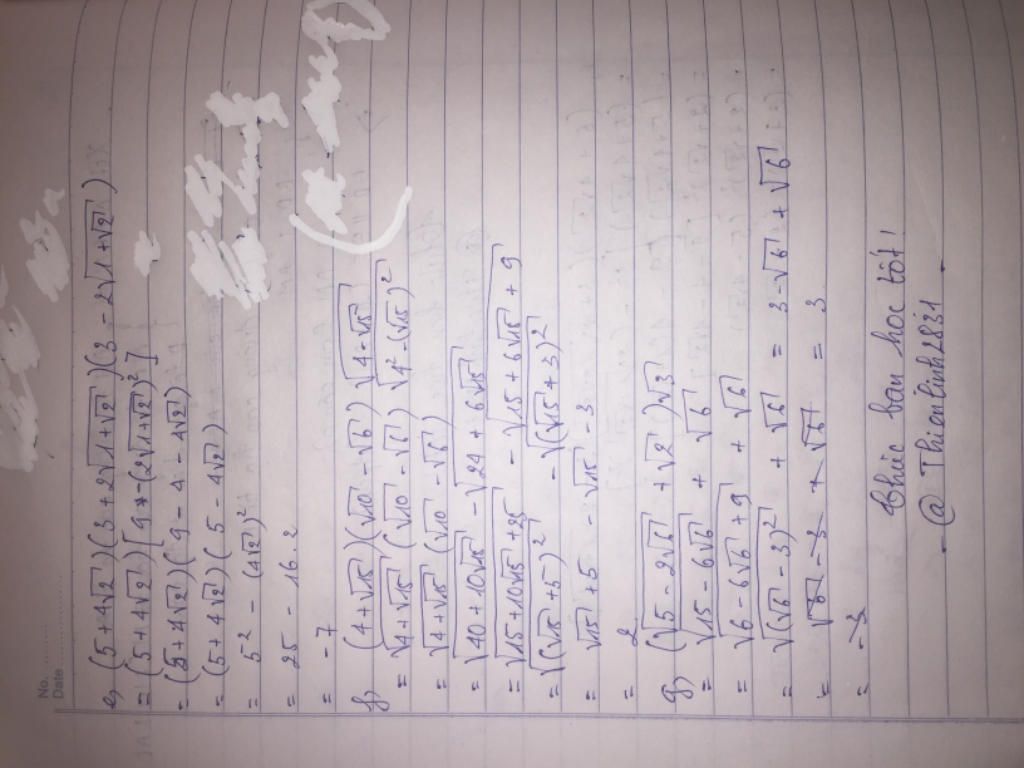 No.
Date
e, (5+4√2)(3+2√(1+√2))(3-2√(1+√2))
= (5+4√2)[9-(2√(1+√2))²]
= (5+4√2)(9-4-4√2)
= (5+4√2)(5-4√2)
= 5² - (4√2)²
= 25 - 16.2
= -7
f, (4+√15)(√10-√6)√(4-√15)
= √(4+√15)(√10-√6)√(4²-(√15)²)
= √(4+√15)(√10-√6)
= √(40+10√15) - √(24+6√15)
= √(15+10√15+25) - √(15+6√15+9)
= √((√15+5)²) - √((√15+3)²)
= √15+5-√15-3
= 2
g, (√(5-2√6)+√2)√3
= √(15-6√6)+√6
= √(6-6√6+9)+√6
= √((√6-3)²)+√6 = 3-√6+√6
= = 3
Chúc bạn học tốt!
@Thienlinh2831